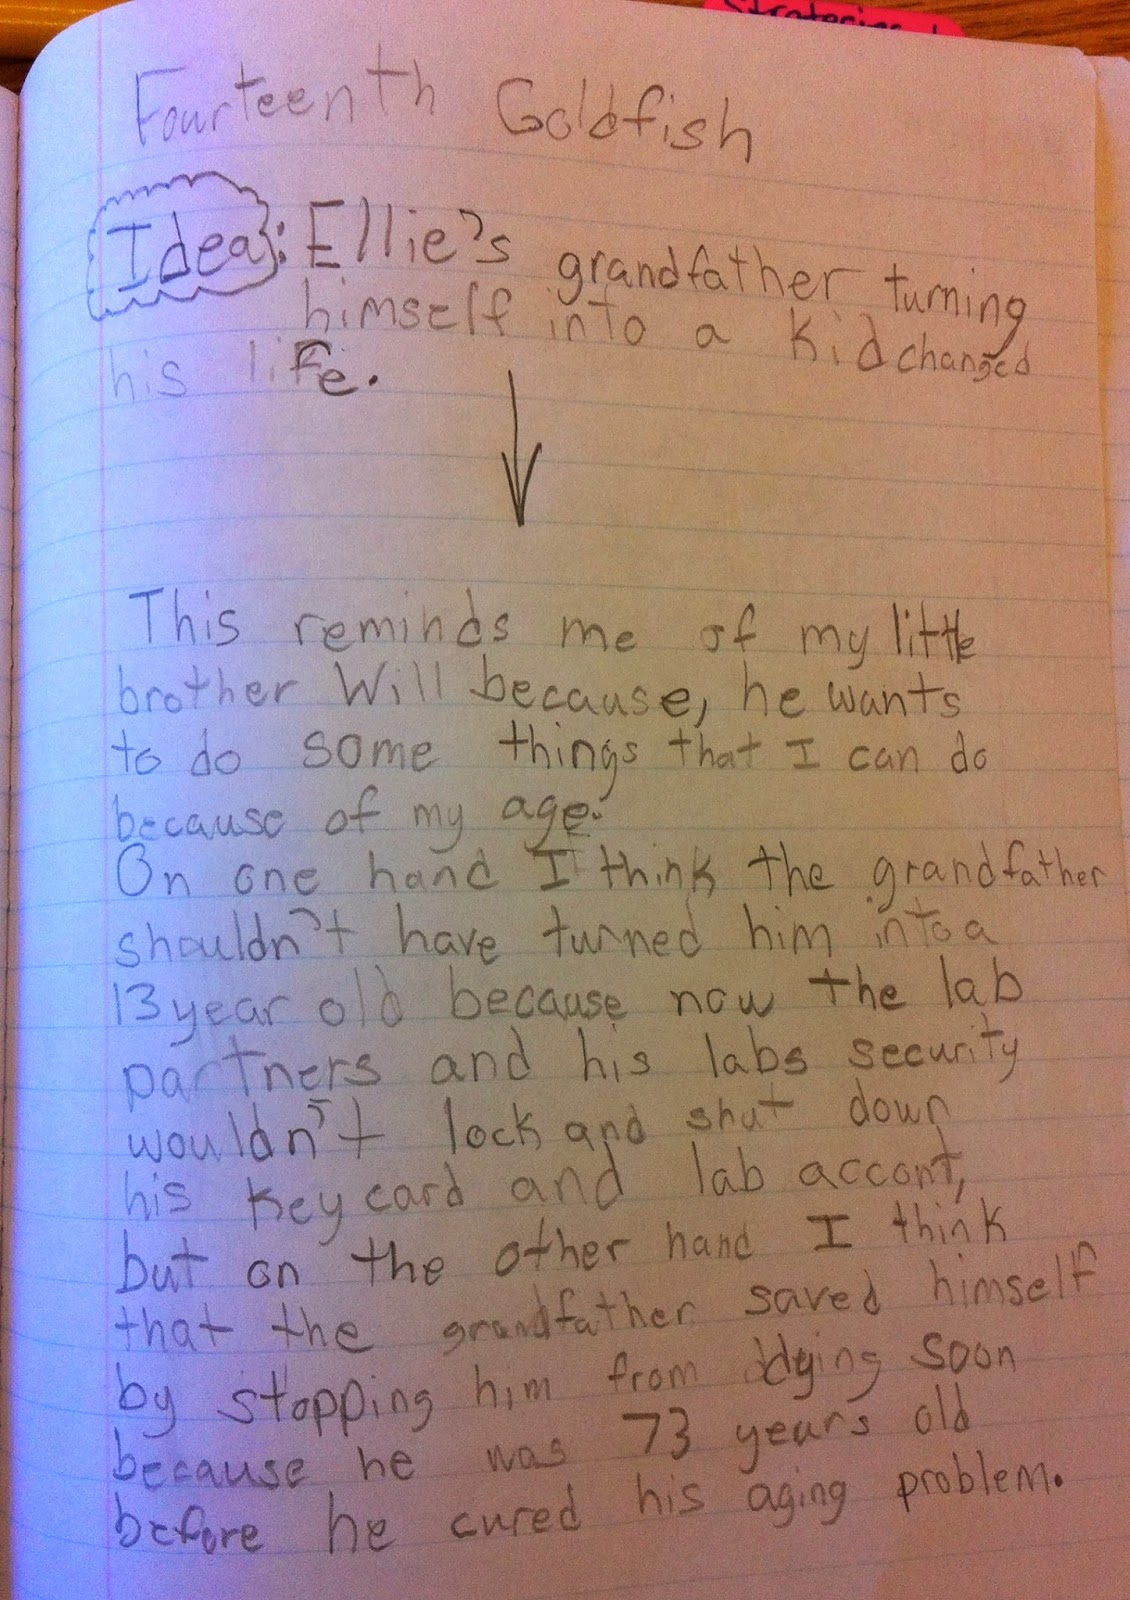 Fourteenth Goldfish
Idea: Ellie's grandfather turning
himself into a kid changed
his life.
This reminds me of my little
brother Will because, he wants
to do some things that I can do
because of my age.
On one hand I think the grandfather
shouldn't have turned him into a
13 year old because now the lab
partners and his labs security
wouldn't lock and shut down
his key card and lab accont,
but on the other hand I think
that the grandfather saved himself
by stopping him from dying soon
because he was 73 years old
before he cured his aging problem.